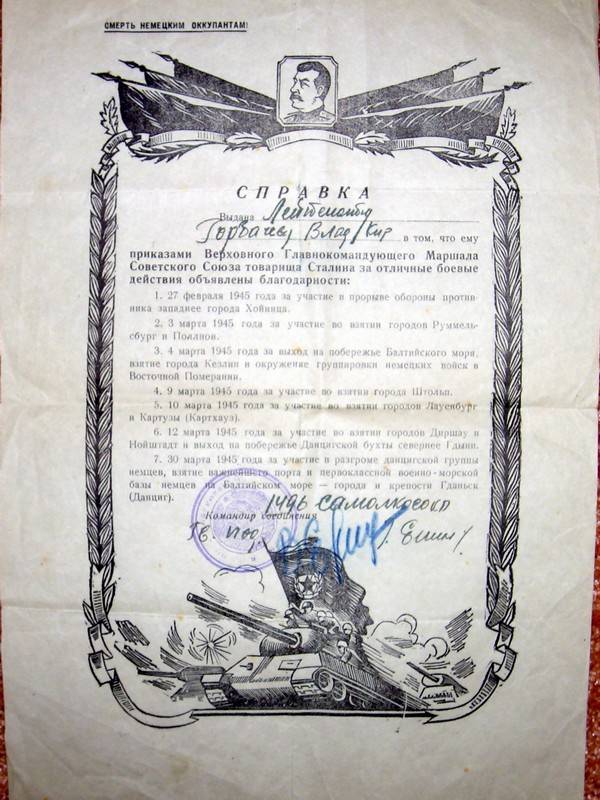 СМЕРТЬ НЕМЕЦКИМ ОККУПАНТАМ!
СПРАВКА
Выдана Лейтенанту
Горбачеву Влад Кир в том, что ему
приказами Верховного Главнокомандующего Маршала
Советского Союза товарища Сталина за отличные боевые
действия объявлены благодарности:
1. 27 февраля 1945 года за участие в прорыве обороны против-
ника западнее города Хойница.
2. 3 марта 1945 года за участие во взятии городов Руммель-
сбург и Поллнов.
3. 4 марта 1945 года за выход на побережье Балтийского моря,
взятие города Кезлин и окружение группировки немецких войск в
Восточной Померании.
4. 9 марта 1945 года за участие во взятии города Штольп.
5. 10 марта 1945 года за участие во взятии городов Лауенбург
и Картузы (Картхауз).
6. 12 марта 1945 года за участие во взятии городов Диршау и
Нойштадт и выход на побережье Данцигской бухты севернее Гдыни.
7. 30 марта 1945 года за участие в разгроме данцигской группы
немцев, взятие важнейшего порта и первоклассной военно-морской
базы немцев на Балтийском море — города и крепости Гданьск
(Данциг).
Командир соединения